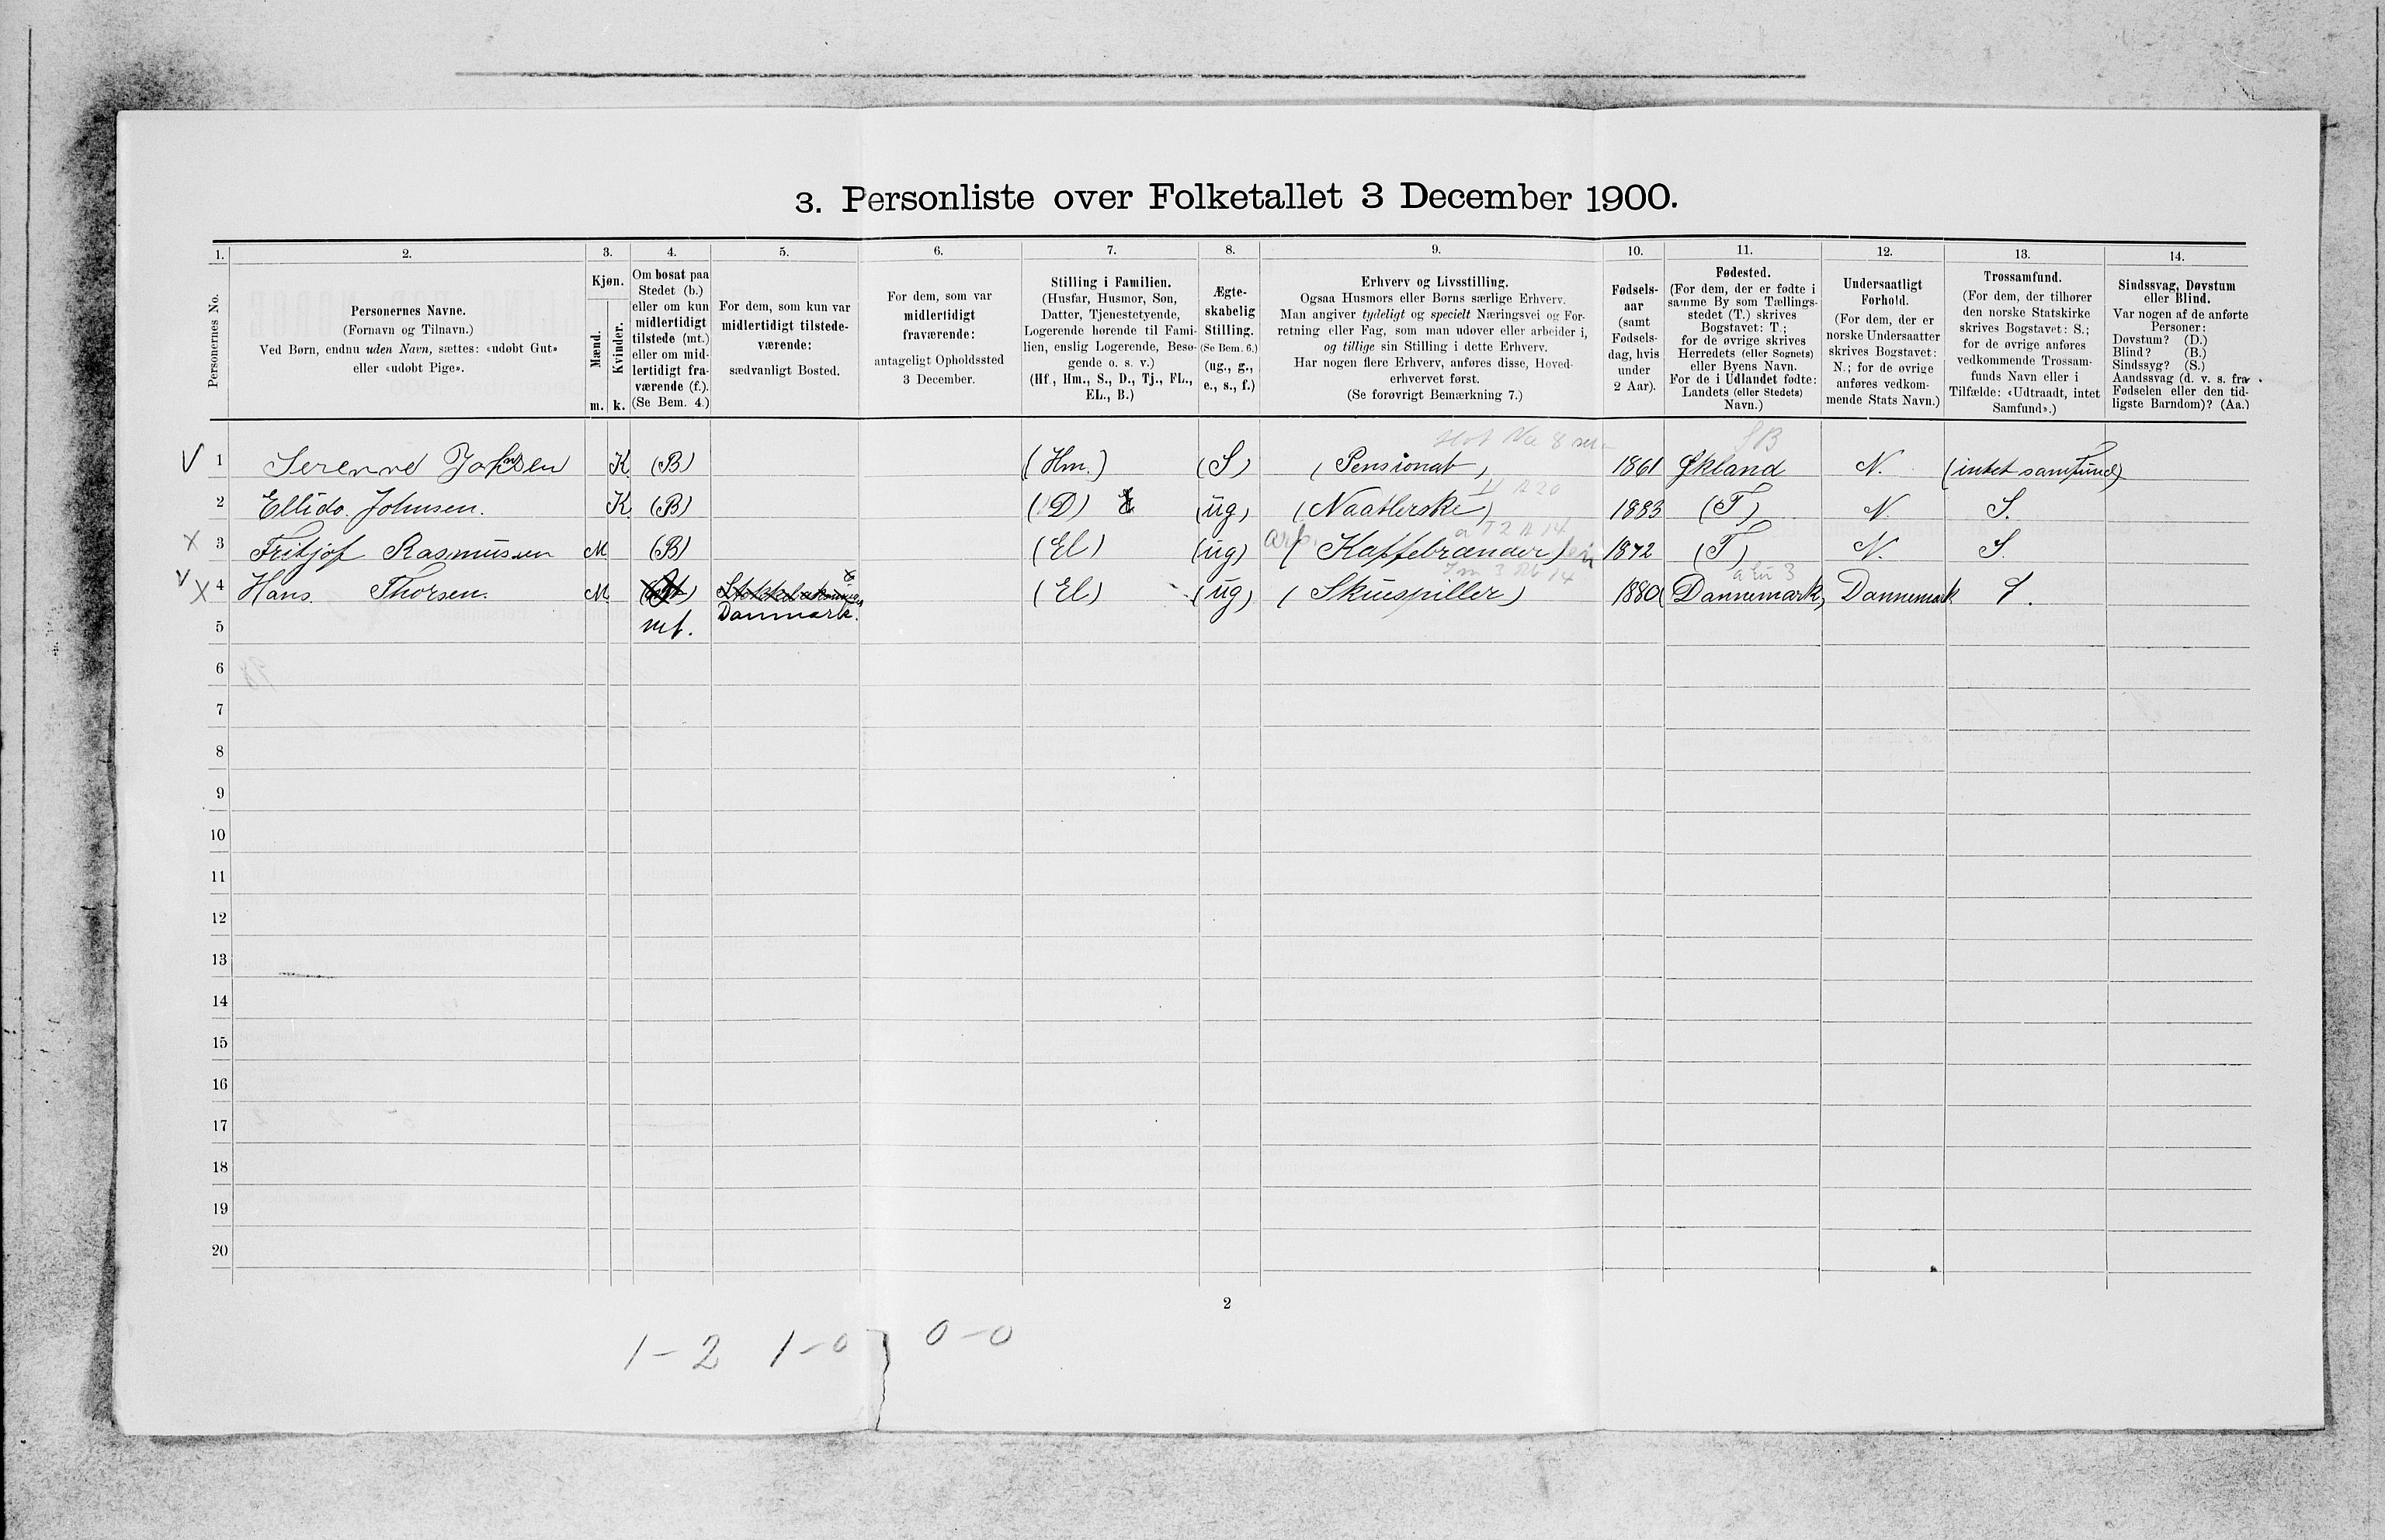 3. Personliste over Folketallet 3 December 1900.
1. 2. 3. 4. 5. 6. 7. 8. 9. 10. 11. 12. 13. 14.
Personernes No.
Personernes Navne.
(Fornavn og Tilnavn.)
Ved Børn, endnu uden Navn, sættes: «udøbt Gut»
eller «udøbt Pige».
Kjøn.
Mænd.
Kvinder.
m. k.
Om bosat paa
Stedet (b.)
eller om kun
midlertidigt
tilstede (mt.)
eller om mid-
lertidigt fra-
værende (f.).
(Se Bem. 4.)
For dem, som kun var
midlertidigt tilstede-
værende:
sædvanligt Bosted.
For dem, som var
midlertidigt
fraværende:
antageligt Opholdssted
3 December.
Stilling i Familien.
(Husfar, Husmor, Søn,
Datter, Tjenestetyende,
Logerende hørende til Fami-
lien, enslig Logerende, Besø-
gende o. s. v.)
(Hf., Hm., S., D., Tj., FL.,
EL., B.)
Ægte-
skabelig
Stilling.
(Se Bem. 6.)
(ug., g.,
e., s., f.)
Erhverv og Livsstilling.
Ogsaa Husmors eller Børns særlige Erhverv.
Man angiver tydeligt og specielt Næringsvei og For-
retning eller Fag, som man udøver eller arbeider i,
og tillige sin Stilling i dette Erhverv.
Har nogen flere Erhverv, anføres disse, Hoved-
erhvervet først.
(Se forøvrigt Bemærkning 7.)
Fødsels-
aar
(samt
Fødsels-
dag, hvis
under
2 Aar).
Fødested.
(For dem, der er fødte i
samme By som Tællings-
stedet (T.) skrives
Bogstavet: T.;
for de øvrige skrives
Herredets (eller Sognets)
eller Byens Navn.
For de i Udlandet fødte:
Landets (eller Stedets)
Navn.)
Undersaatligt
Forhold.
(For dem, der er
norske Undersaatter
skrives Bogstavet:
N.; for de øvrige
anføres vedkom-
mende Stats Navn.)
Trossamfund.
(For dem, der tilhører
den norske Statskirke
skrives Bogstavet: S.;
for de øvrige anføres
vedkommende Trossam-
funds Navn eller i
Tilfælde: «Udtraadt, intet
Samfund».)
Sindssvag, Døvstum
eller Blind.
Var nogen af de anførte
Personer:
Døvstum? (D.)
Blind? (B.)
Sindssyg? (S.)
Aandssvag (d. v. s. fra
Fødselen eller den tid-
ligste Barndom)? (Aa.)
1 Serenne K (B) (Hm.) (S) (Pensionat) 1861 Økland N. (intet samfund)
2 Ellida Johnsen. K (B) (D) (ug) (Naatlerske) 1883 (T) N. S.
3 Fritjof Rasmussen M (B) (El) (ug) (Kaffebrænder) 1872 (T) N. S.
4 Hans Thorsen. M (El) (ug) (Skuespiller) 1880 (Dannemark) Dannemark S.
mt. Danmark.
5
6
7
8
9
10
11
12
13
14
15
16
17
18
19
20
2
1-2 1-0 0-0